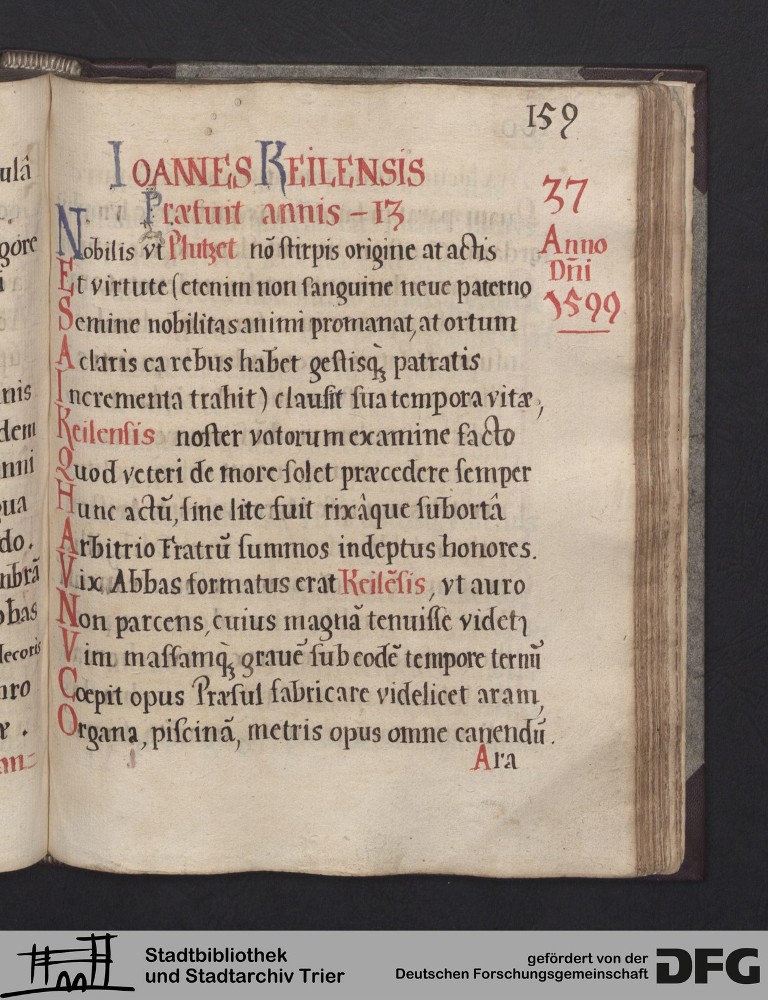 ulâ
gore
nis
dem
nni
ua
do.
mbrâ
bas
decoris
159
IOANNES KEILENSIS
Præfuit annis – 13
37
Anno
Dñi
1599
Nobilis vt Plutzet nõ ſtirpis origine at actis
Et virtute (etenim non ſanguine neue paterno
Semine nobilitas animi promanat, at ortum
A claris ca rebus habet geſtisq; patratis
Incrementa trahit) clauſit ſua tempora vitæ,
Keilenſis noſter votorum examine facto
Quod veteri de more ſolet præcedere ſemper
Hunc actũ, ſine lite fuit rixâque ſubortâ
Arbitrio Fratrũ ſummos indeptus honores.
Vix Abbas formatus erat Keilẽſis, vt auro
Non parcens, cuius magnã tenuiſſe videtꝛ
Vim maſſamq; grauẽ ſub eodẽ tempore ternũ
Coepit opus Præſul fabricare videlicet aram,
Organa, piſcinã, metris opus omne canendũ.
Ara
Stadtbibliothek
und Stadtarchiv Trier
gefördert von der
Deutschen Forschungsgemeinschaft
DFG